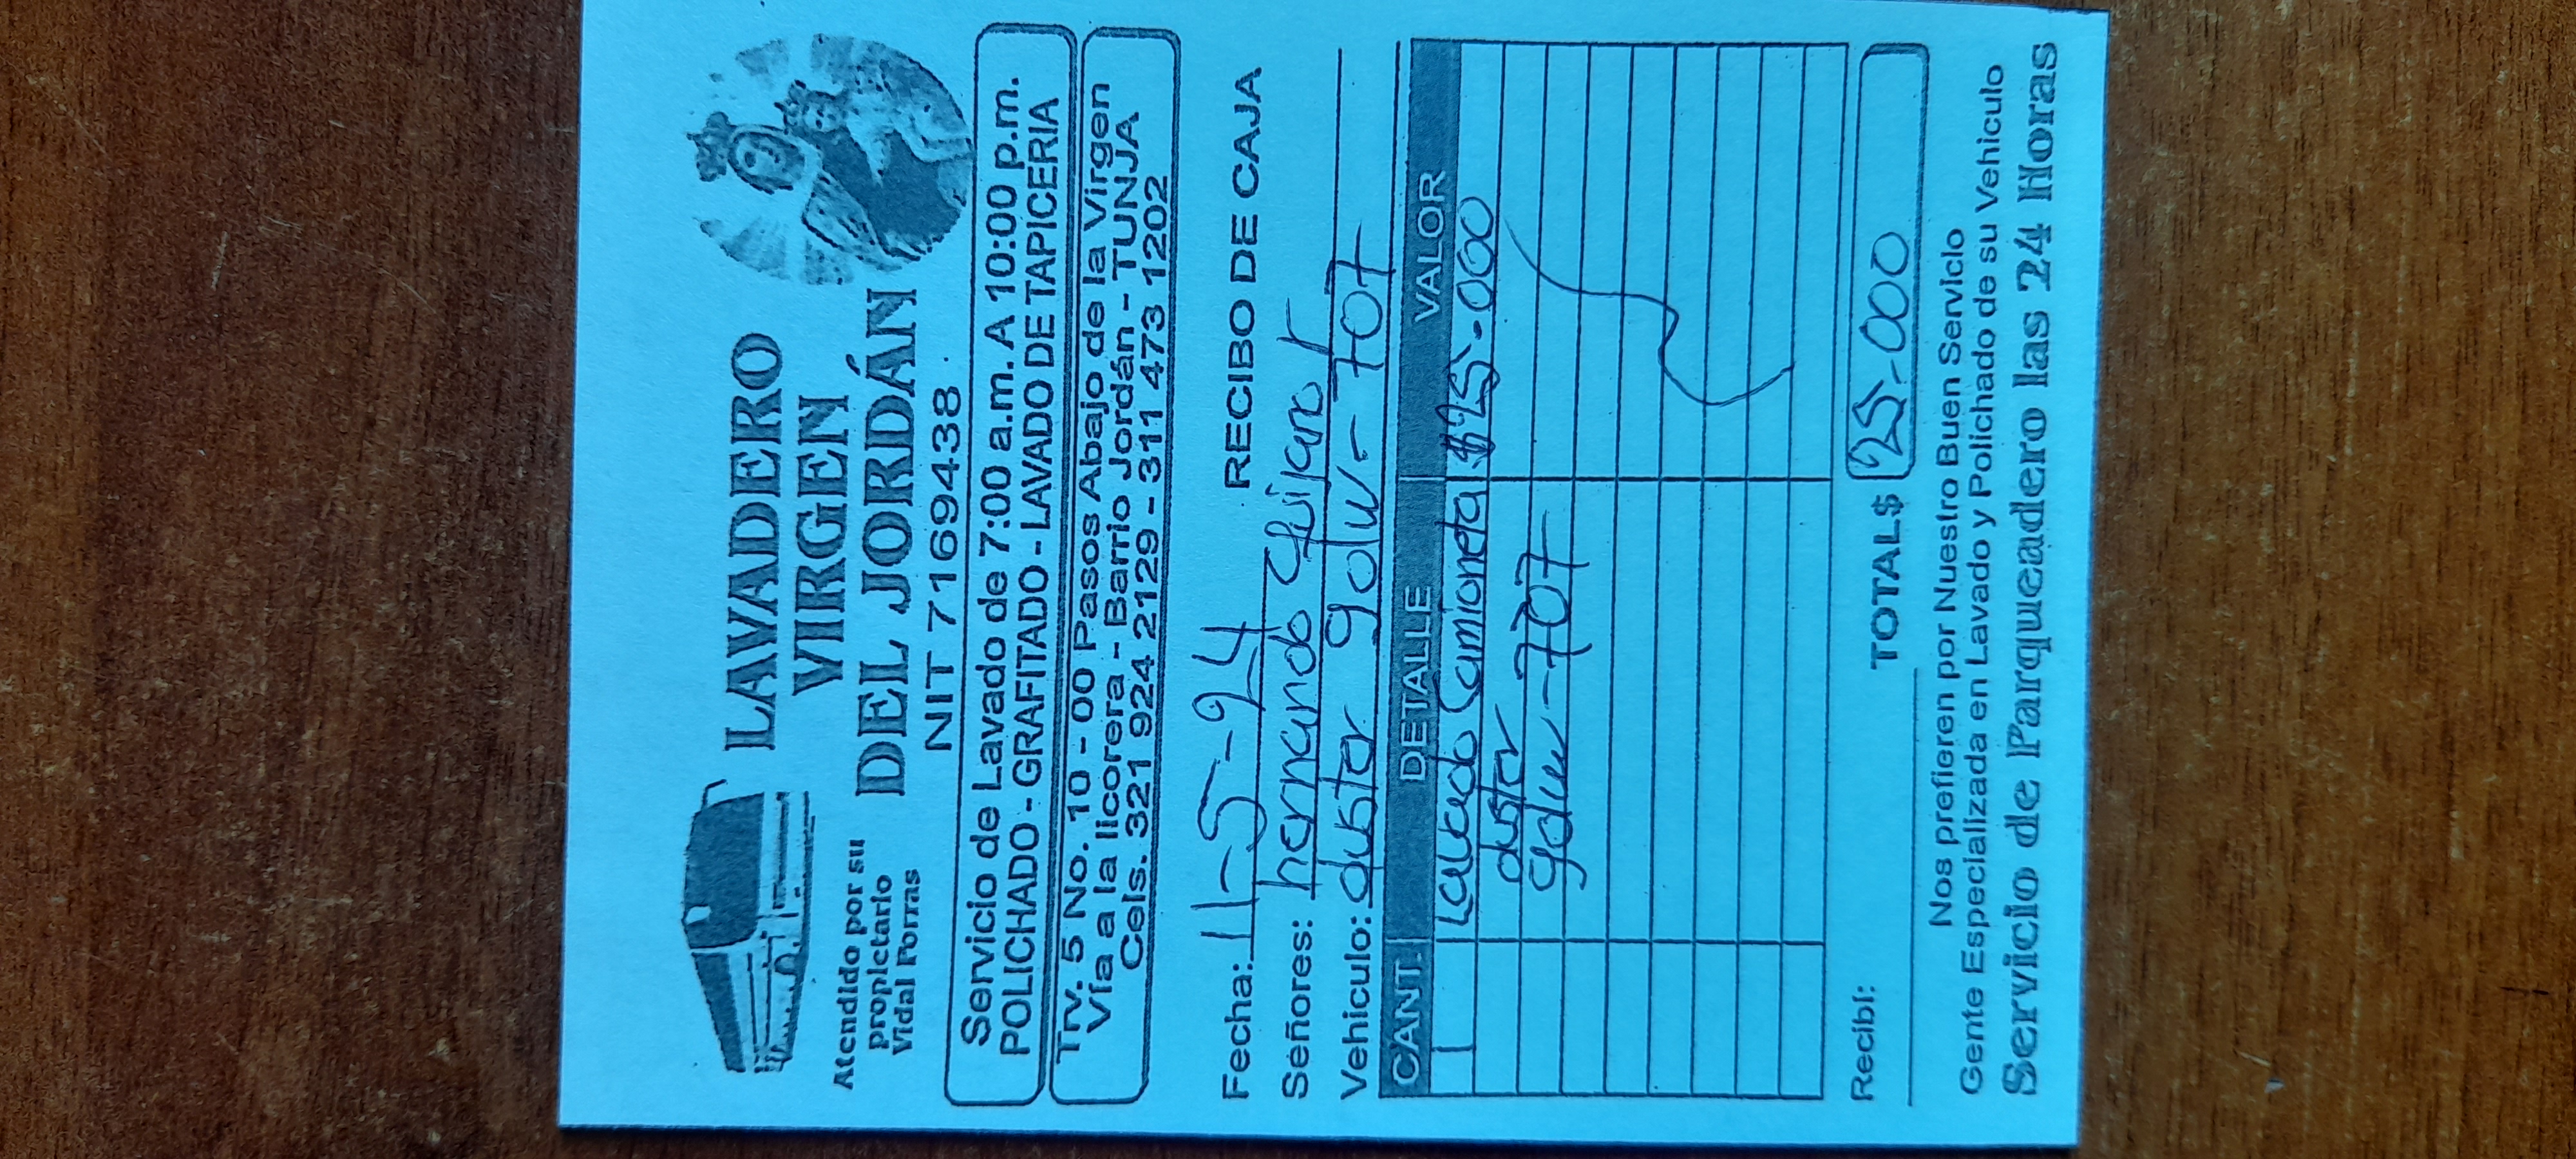 LAVADERO
VIRGEN
DEL JORDÁN
NIT 7169438
Atendido por su
propietario
Vidal Porras
Servicio de Lavado de 7:00 a.m. A 10:00 p.m.
POLICHADO - GRAFITADO - LAVADO DE TAPICERIA
Trv. 5 No. 10 - 00 Pasos Abajo de la Virgen
Vía a la licorera - Barrio Jordán - TUNJA
Cels. 321 924 2129 - 311 473 1202
RECIBO DE CAJA
Fecha: 11-5-24
Señores: hernando Quijano
Vehiculo: duster gdw-707
CANT. DETALLE VALOR
1 Lavado Camioneta $25.000
duster
gdw-707
TOTAL$ 25.000
Recibí:
Nos prefieren por Nuestro Buen Servicio
Gente Especializada en Lavado y Polichado de su Vehiculo
Servicio de Parqueadero las 24 Horas